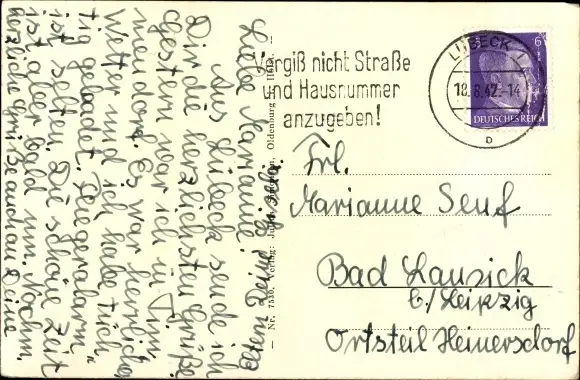 Liebe Marianne!
Aus Lübeck sende ich
Dir die herzlichsten Grüße.
Gestern war ich in Tim-
mendorf. Es war herrliches
Wetter und ich habe tüch-
tig gebadet. Fliegeralarm
ist selten. Die schöne Zeit
ist aber bald um. Nochm.
herzliche Grüße auch an Deine
Eltern Deine
Vergiß nicht Straße
und Hausnummer
anzugeben!
LÜBECK
18.8.42.-14
D
6
DEUTSCHES REICH
Frl.
Marianne Senf
Bad Lausick
b./Leipzig
Ortsteil Heinersdorf
— Nr. 7530, Verlag: Oldenburg